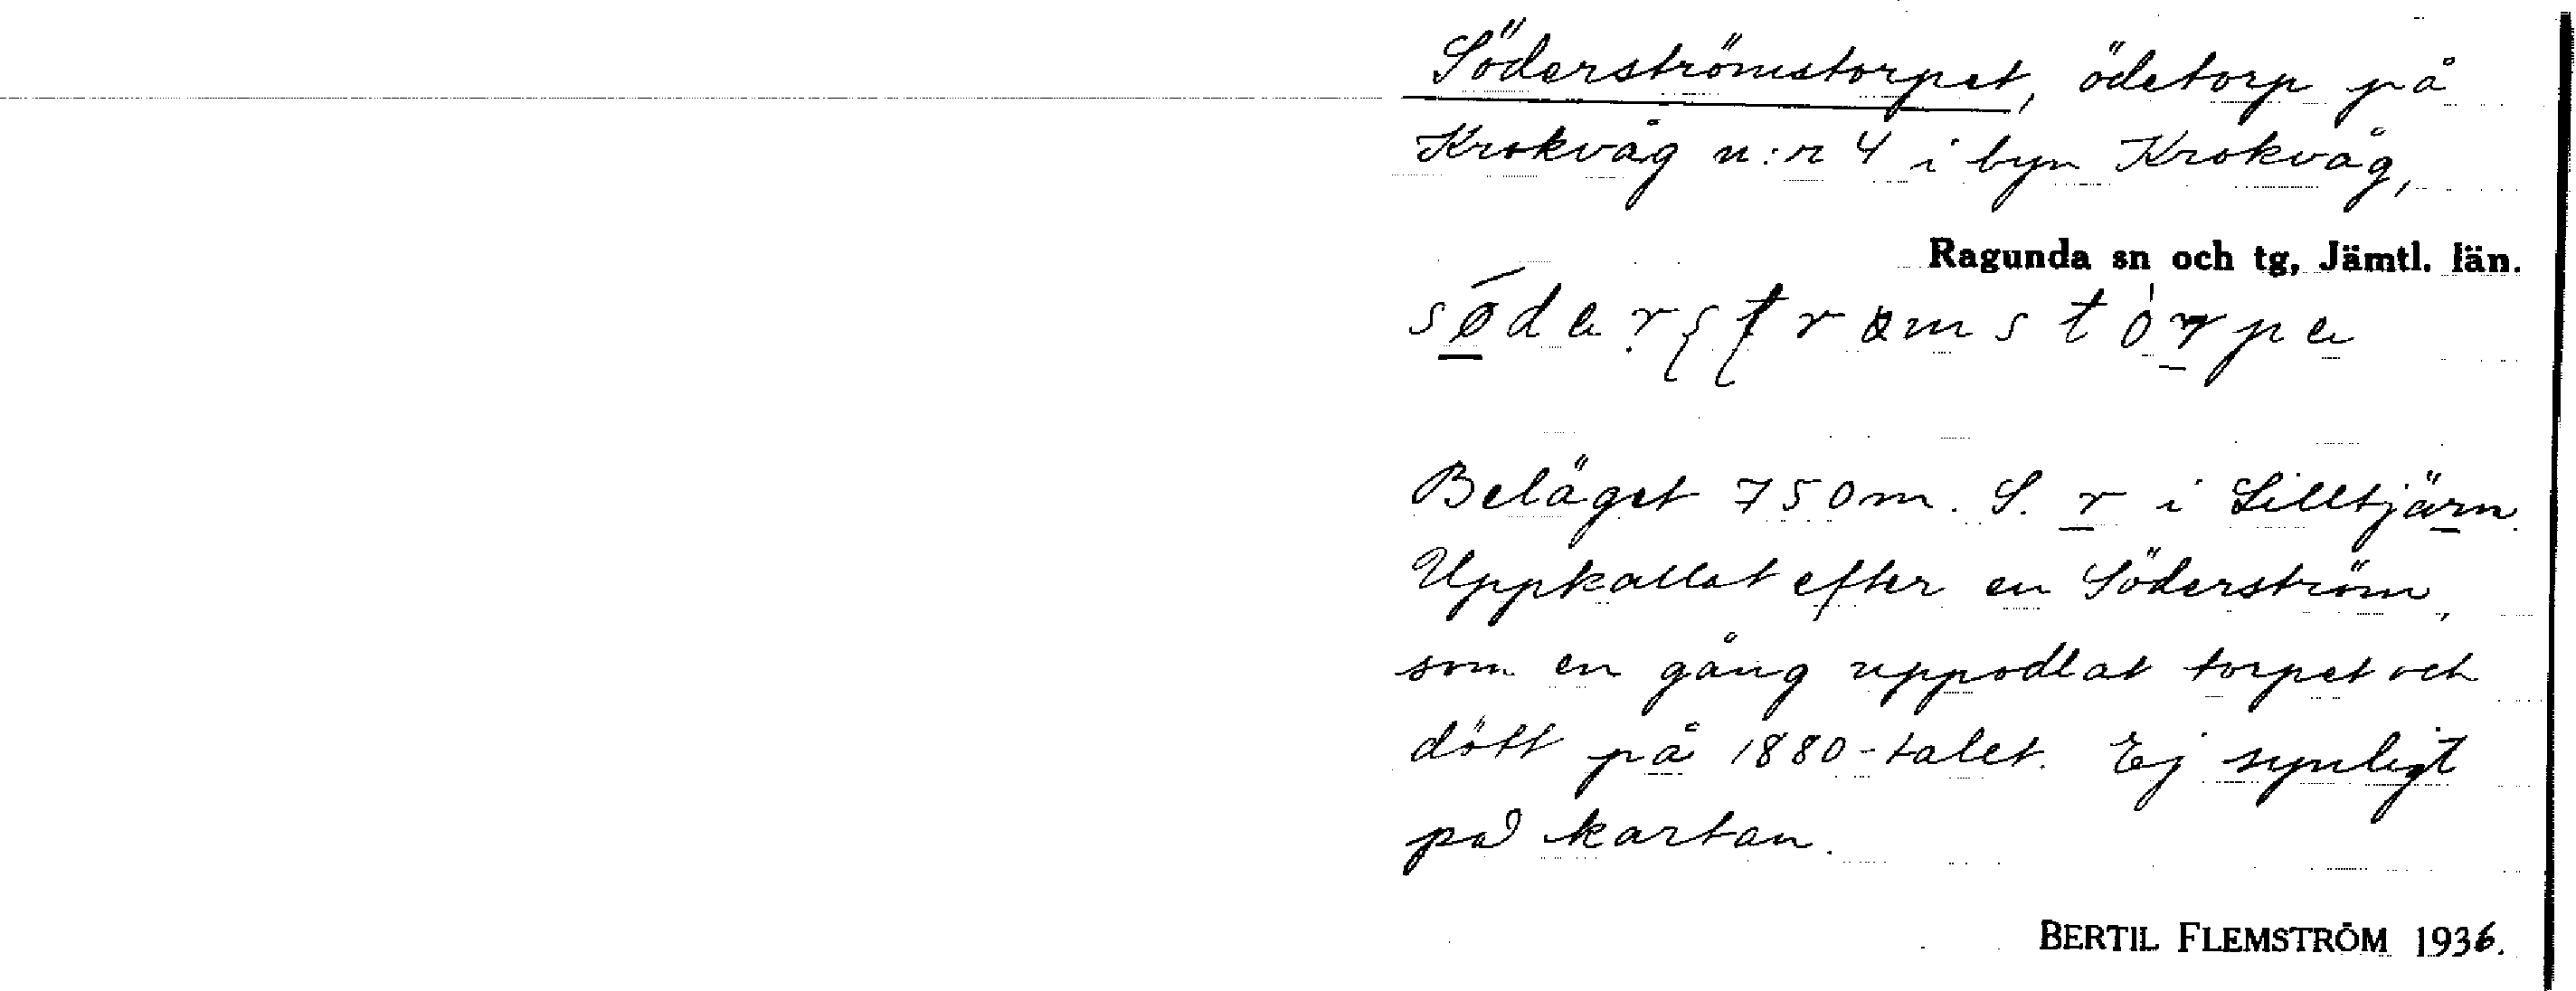 Söderströmstorpet, ödetorp på
Krokvåg n:r 4 i byn Krokvåg,
Ragunda sn och tg, Jämtl. län.
Beläget 750 m. S. r i Lilltjärn.
Uppkallat efter en Söderström,
som en gång uppodlat torpet och
dött på 1880-talet. Ej synligt
på kartan.
BERTIL FLEMSTRÖM 1936.